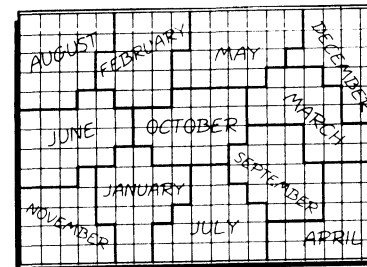 AUGUST
FEBRUARY
MAY
DECEMBER
JUNE
OCTOBER
MARCH
JANUARY
SEPTEMBER
NOVEMBER
JULY
APRIL